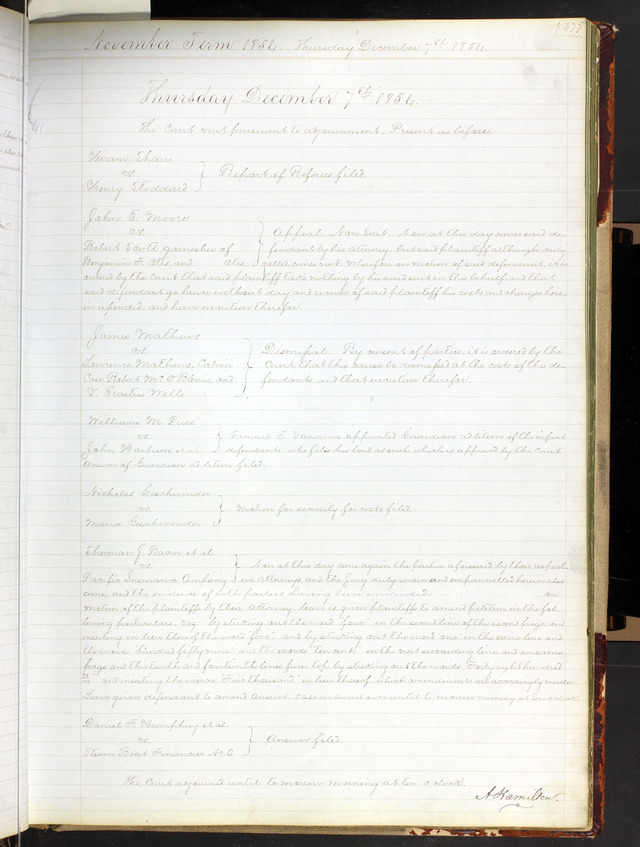 November Term 1854. Thursday December 7th 1854.
277
Thursday December 7th 1854.
The Court met pursuant to adjournment. Present as before.
Hiram Shaw
vs
Henry Stoddard
Report of Referee filed.
John E. Moore
vs.
Robert Scott garnishee of
Benjamin F. Otis and Otis
Appeal. Non Suit. Now at this day comes said de-
fendant by his attorney, but said plaintiff although duly
called, comes not. Wherefore on motion of said defendant, it is
ordered by the Court that said plaintiff take nothing by his said suit in this behalf and that
said defendant go hence without day and recover of said plaintiff his costs and charges here-
in expended, and have execution therefor.
James Mathews
vs
Lawrence Mathews, Calvin
Case, Robert Mc O'Blenis and
V. Erastus Wells
Dismissal. By consent of parties, it is ordered by the
Court, that this cause be dismissed at the costs of the de-
fendants, and that execution therefor.
William M. Price
vs
John Harrison et al
Samuel T. appointed Guardian ad litem of the infant
defendants, who files his bond as such which is approved by the Court
Answer of Guardian ad litem filed.
Nicholas Geschwender
vs
Maria Geschwender
Motion for security for costs filed.
Sherman J. Bacon et al
vs
Pacific Insurance Company
Now at this day come again the parties aforesaid by their respect-
ive Attorneys and the Jury duly sworn and empannelled herein also
come and the evidence of both parties having been concluded. on
motion of the plaintiffs by their Attorney, leave is given plaintiffs to amend petition in the fol-
lowing particulars, viz: by striking out the word "four" in the second line of the second page and
inserting in lieu thereof the word "five", and by striking out the word "one" in the same line and
the words "hundred fifty nine" and the words "ten cents" in the next succeeding line, and on same
page and thirteenth and fourteenth lines from top by striking out the words "Forty eight hundred
" and inserting the words "Five thousand" in lieu thereof, which amendments are accordingly made.
Leave given defendant to amend answer. Case continued until to morrow morning at ten o'clock.
Daniel F. Humphrey et al
vs
Steam Boat Financier No 2.
Answer filed.
The Court adjourned until to morrow morning at ten o'clock.
A. Hamilton.